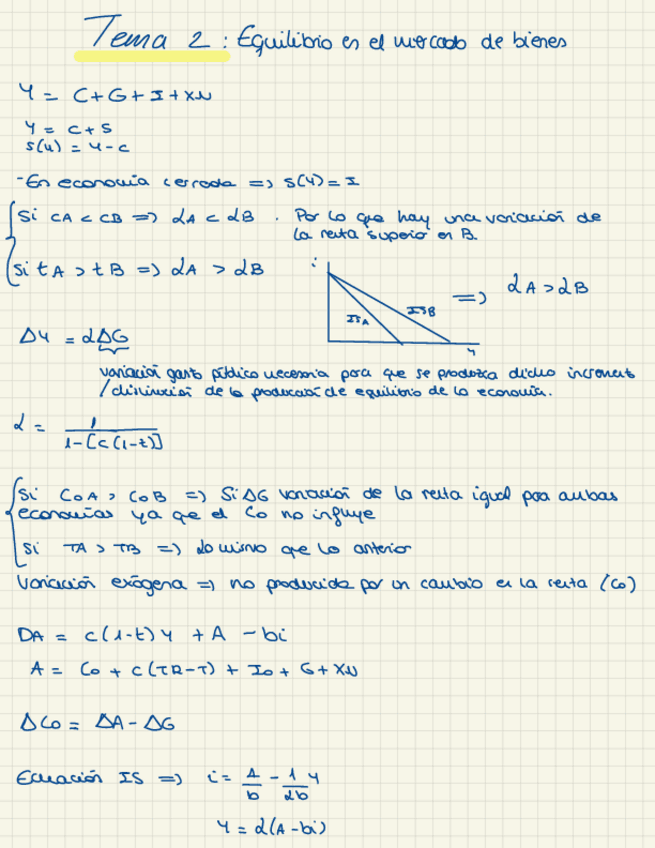 Tema 2: Equilibrio en el mercado de bienes
Y = C+G+I+XN
Y = C+S
S(Y) = Y-C
-En economía cerrada => S(Y)=I
Si CA < CB => αA < αB. Por lo que hay una variación de
la renta superior en B.
Si tA > tB => αA > αB
i
ISA
ISB
Y
=> αA > αB
ΔY = αΔG
variación gasto público necesaria para que se produzca dicho incremento
/disminución de la producción de equilibrio de la economía.
α = 1/1-[c(1-t)]
Si CoA > CoB => Si ΔG variación de la renta igual para ambas
economías ya que el Co no influye
Si TA > TB => Lo mismo que lo anterior
Variación exógena => no producida por un cambio en la renta (Co)
DA = c(1-t)Y + A - bi
A = Co + c(TR-T) + Io + G + XN
ΔCo = ΔA - ΔG
Ecuación IS => i = A/b - 1/αb Y
Y = α(A-bi)